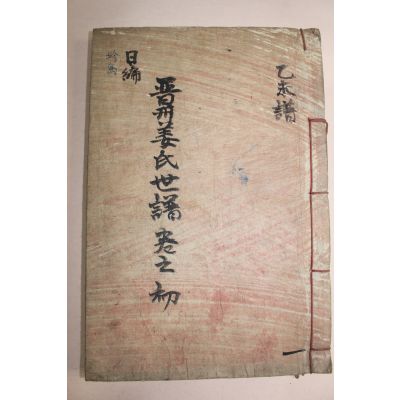 乙未譜
晋州姜氏世譜卷之初
日編
一